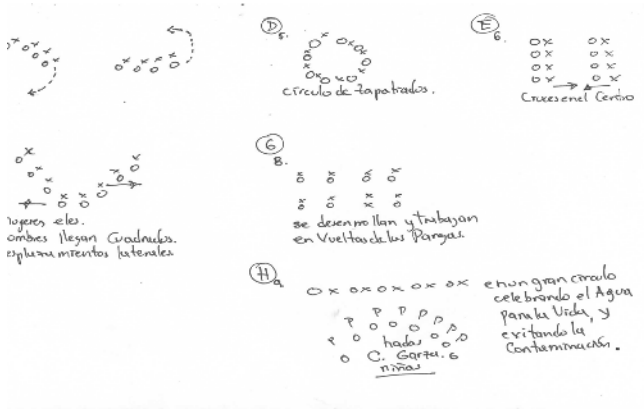 D
5.
circulo de Zapatiados.
E
6.
Cruces en el Centro
ujeres eles.
ombres llegan Cuadrados.
esplazamientos laterales
G
8.
se desenrollan y trabajan
en Vueltas de las Parejas.
H
9
en un gran circulo
celebrando el Agua
para la Vida, y
evitando la
Contaminación.
hadas
C. Garza. 6
niñas